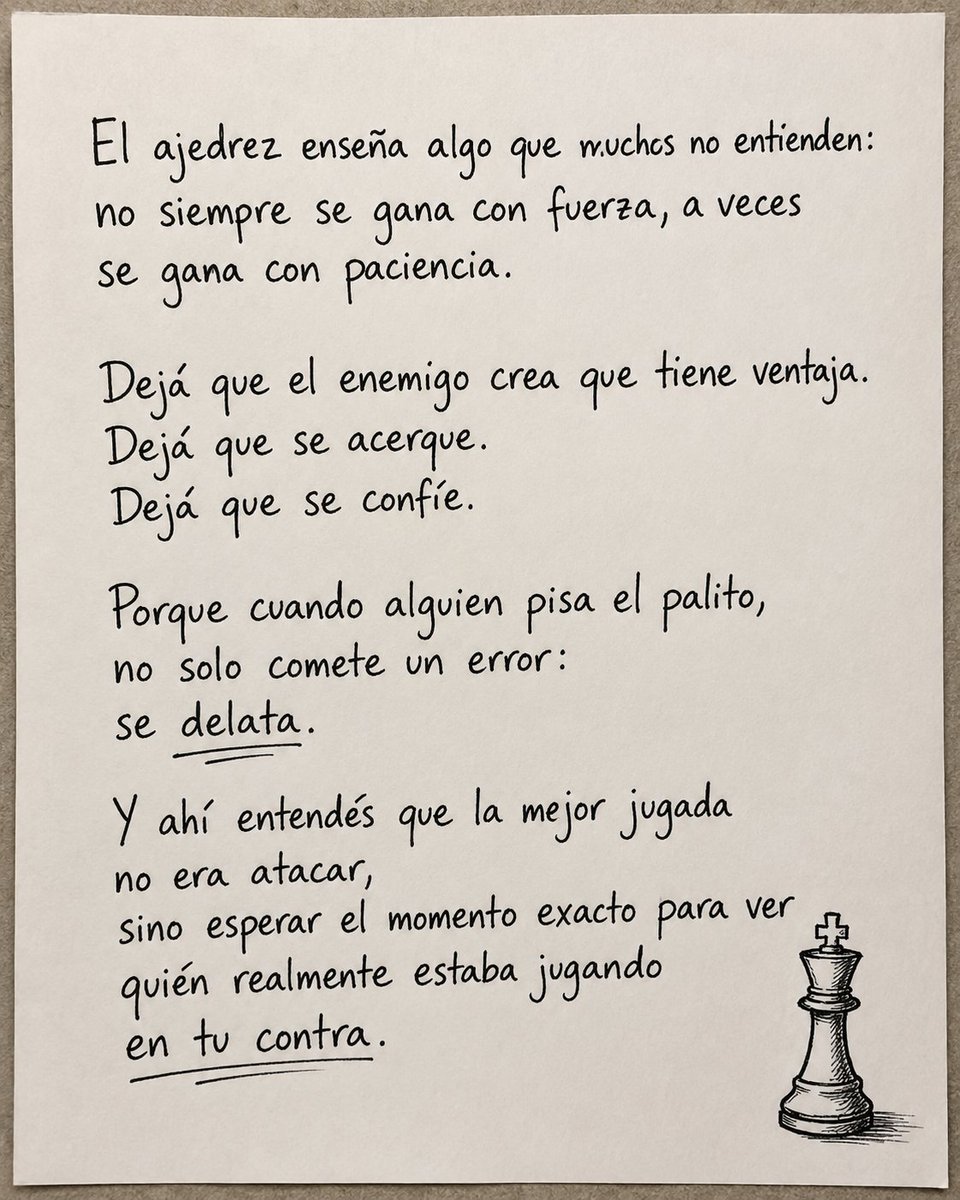 El ajedrez enseña algo que muchos no entienden:
no siempre se gana con fuerza, a veces
se gana con paciencia.
Dejá que el enemigo crea que tiene ventaja.
Dejá que se acerque.
Dejá que se confíe.
Porque cuando alguien pisa el palito,
no solo comete un error:
se delata.
Y ahí entendés que la mejor jugada
no era atacar,
sino esperar el momento exacto para ver
quién realmente estaba jugando
en tu contra.